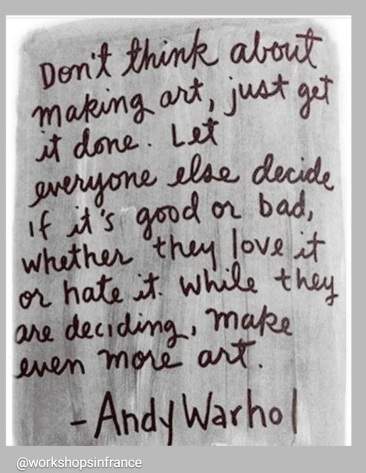 Don't think about
making art, just get
it done. Let
everyone else decide
if it's good or bad,
whether they love it
or hate it. While they
are deciding, make
even more art.
- Andy Warhol
@workshopsinfrance